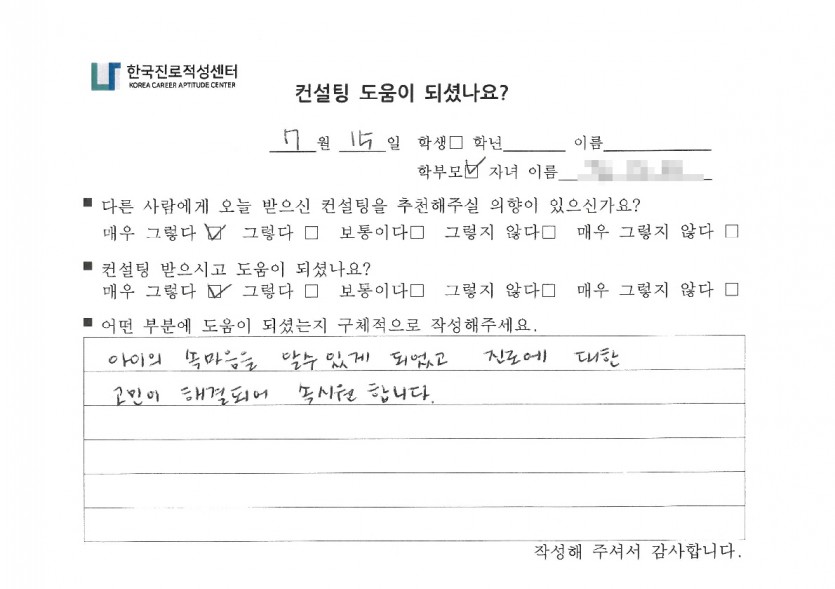 한국진로적성센터
KOREA CAREER APTITUDE CENTER
컨설팅 도움이 되셨나요?
7월 15일 학생□ 학년 이름
학부모☑ 자녀 이름
■ 다른 사람에게 오늘 받으신 컨설팅을 추천해주실 의향이 있으신가요?
매우 그렇다 ☑ 그렇다 □ 보통이다□ 그렇지 않다□ 매우 그렇지 않다 □
■ 컨설팅 받으시고 도움이 되셨나요?
매우 그렇다 ☑ 그렇다 □ 보통이다□ 그렇지 않다□ 매우 그렇지 않다 □
■ 어떤 부분에 도움이 되셨는지 구체적으로 작성해주세요.
아이의 속마음을 알수 있게 되었고 진로에 대한
고민이 해결되어 속시원 합니다.
작성해 주셔서 감사합니다.